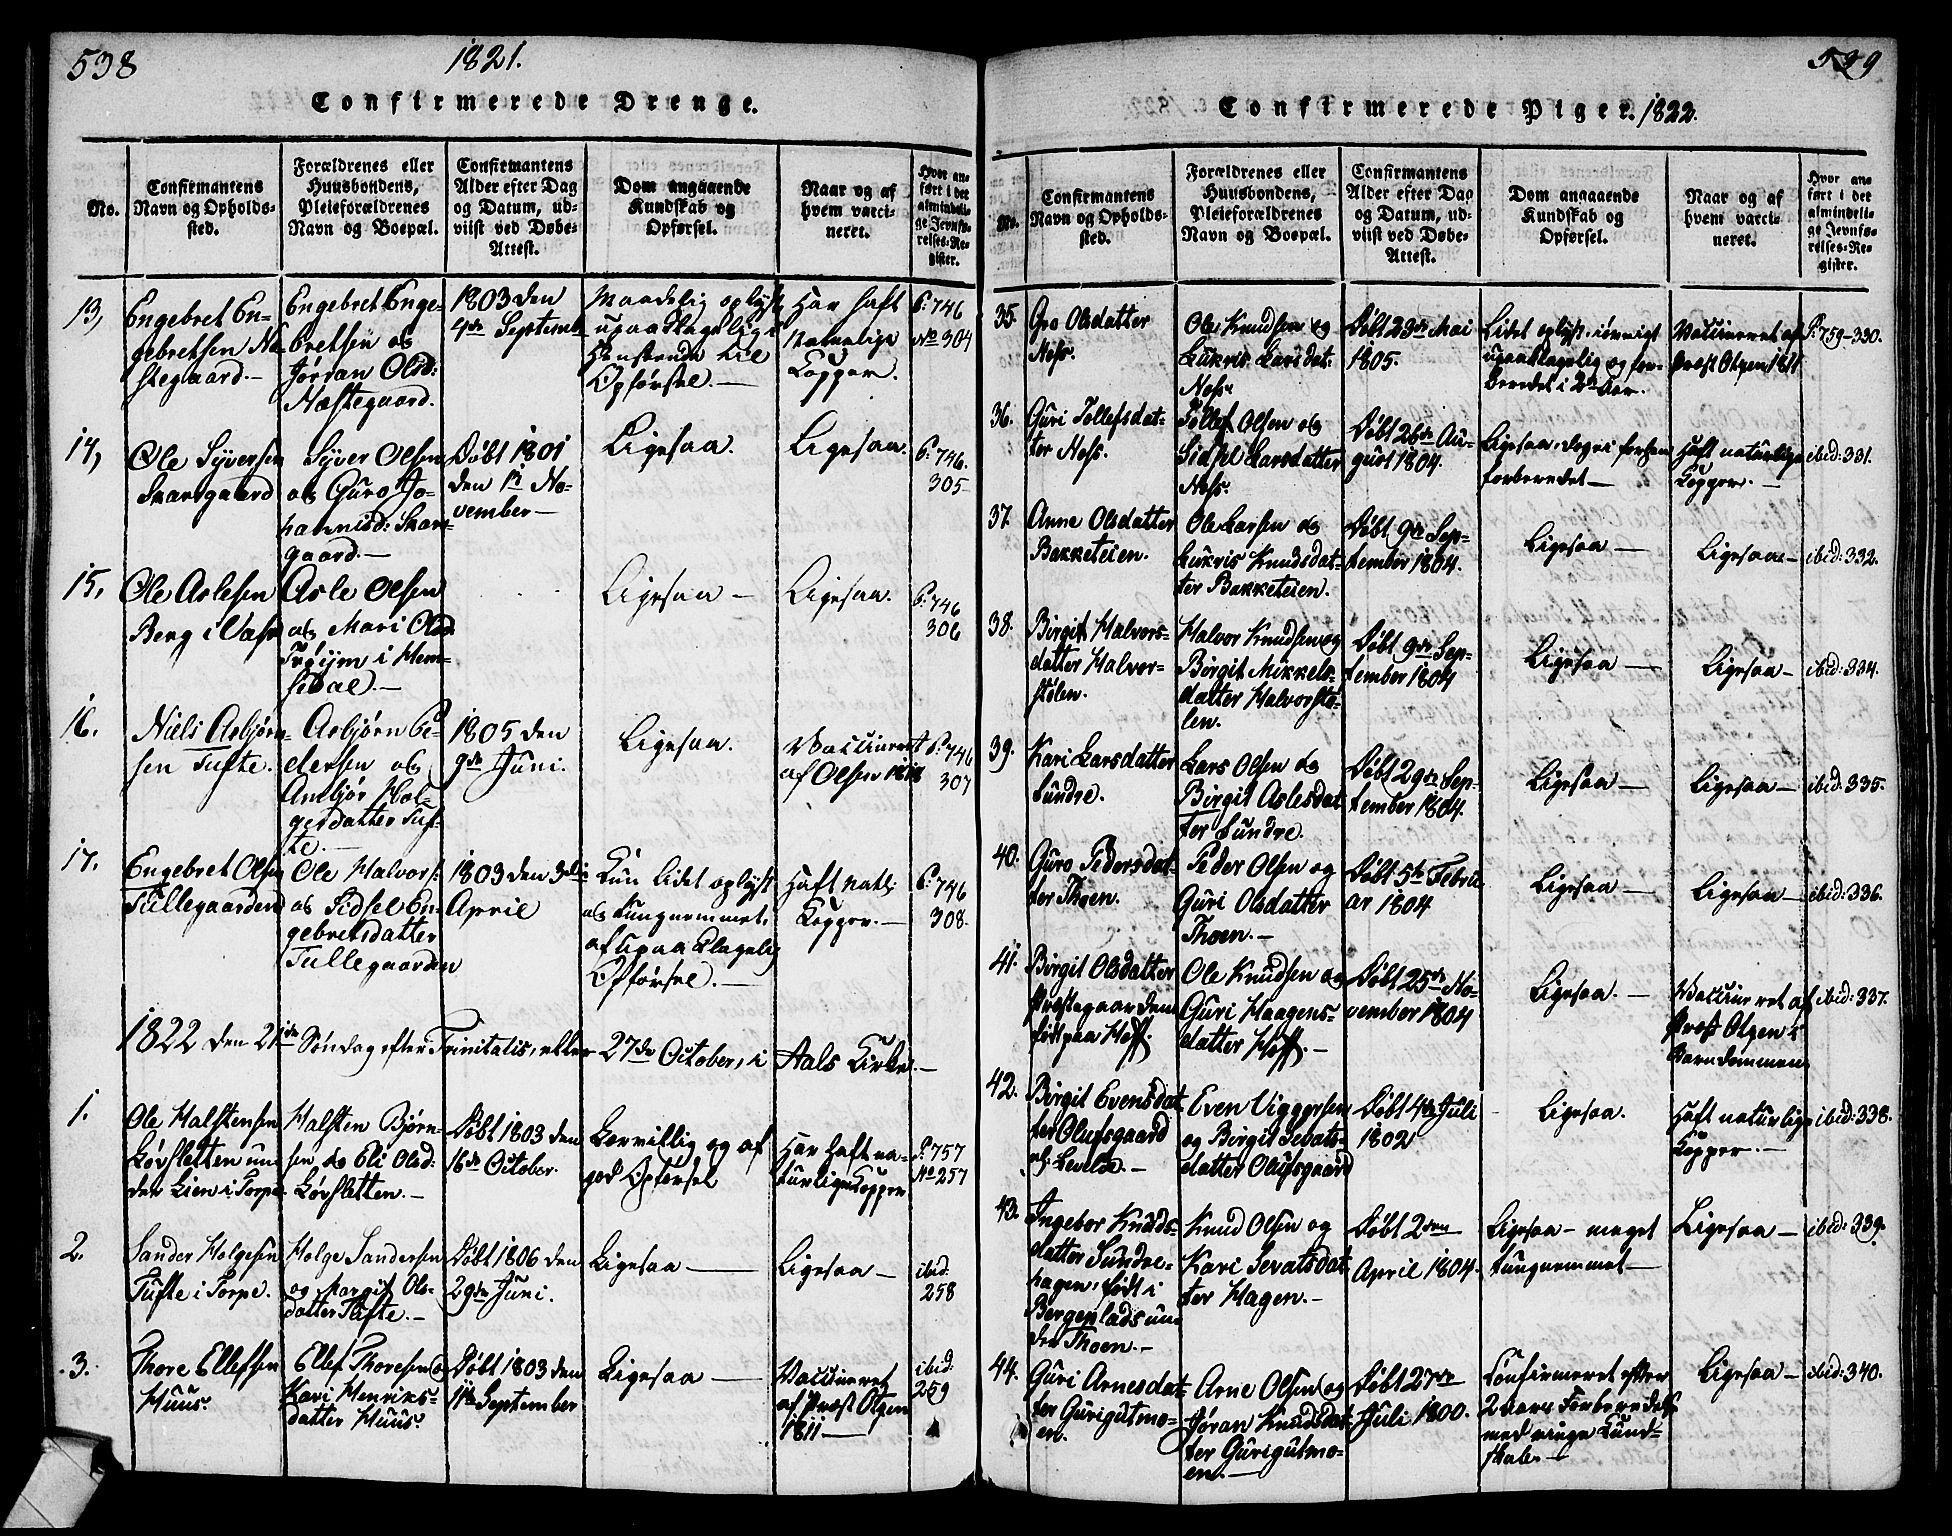 538
1821.
Confirmerede Drenge.
No.
Confirmantens
Navn og Opholds-
sted.
Forældrenes eller
Huusbondens,
Pleieforældrenes
Navn og Boepæl.
Confirmantens
Alder efter Dag
og Datum, ud-
viist ved Døbe-
Attest.
Dom angaaende
Kundskab og
Opførsel.
Naar og af
hvem vacci-
neret.
Hvor an-
ført i det
almindeli-
ge Jevnfø-
relses-Re-
gister.
13,
Engebret En-
gebretsen Næ-
stegaard.-
Engebret Enge-
bretsen og
Jöran Olsd:
Næstegaard.
1803 den
4de Septemb
Maadelig oplyst
upaaklagelig i
Henseende til
Opførsel.-
Har haft
Naturlige
Kopper.
P. 746
No 304
14,
Ole Syversen
Skarsgaard
Syver Olsen
og Guro Jo-
hannisd: Skars-
gaard.-
Døbt 1801
den 1ste No-
vember-
Ligesaa.
Ligesaa.
P. 746.
305
15.
Ole Aslesen
Berg i Vats
Asle Olsen
og Mari Olsd
Trøym i Hem-
sedal.-
Ligesaa-
Ligesaa.
P. 746
306
16.
Niels Asbjørn-
sen Tufte.
Asbjørn Pe-
dersen og
Ambjør Hol-
gersdatter Tuf-
te.-
1805 den
9de Juni.
Ligesaa.
Vaccineret
af Olsen 1818
P. 746
307
17.
Engebret Olsen
Tullegaarden
Ole Halvors:
og Sidsel En-
gebretsdatter
Tullegaarden
1803 den 3die
April
Kun lidet oplyst
og tungnemmet,
af upaaklagelig
Opførsel.-
Haft natl:
Kopper.-
P. 746
308.
1822 den 21de Søndag efter Trinitatis, eller 27de October, i Aals Kirke.-
1.
Ole Halstensen
Løvsletten un-
der Lien i Torpe
Halsten Bjørn-
sen og Eli Olsd:
Løvsletten.-
Døbt 1803 den
16de October.
Lærvillig og af
god Opførsel
Har haft na-
turlige Kopper
P. 757
No 257
2.
Sander Holgesen
Tufte i Torpe.
Holge Sandersen
og Margit Ols-
datter Tufte.-
Døbt 1806 den
29de Juni.
Ligesaa-
Ligesaa-
ibid:
258
3.
Thore Ellefsen
Huus.
Ellef Thoresen og
Kari Henriks-
datter Huus.
Døbt 1803 den
11te September
Ligesaa-
Vaccineret
af Prost Olgen
1811-
ibid:
259
539
Confirmerede Piger. 1822.
No.
Confirmantens
Navn og Opholds-
sted.
Forældrenes eller
Huusbondens,
Pleieforældrenes
Navn og Boepæl.
Confirmantens
Alder efter Dag
og Datum, ud-
viist ved Døbe-
Attest.
Dom angaaende
Kundskab og
Opførsel.
Naar og af
hvem vacci-
neret.
Hvor an-
ført i det
almindeli-
ge Jevnfø-
relses-Re-
gister.
35.
Gro Olsdatter
Næss.
Ole Knudsen og
Gukris Larsdat:
Næss.
Døbt 23de Mai
1805.
Lidet oplyst, iøvrigt
upaaklagelig og for-
beredet i 2de Aar.
Vaccineret af
Prost Olgen 1811
P. 759-330.
36.
Guri Tollefsdat-
ter Næss.
Tollef Olsen og
Sidsel Larsdatter
Næss.
Døbt 26de Au-
gust 1804.
Ligesaa,
forberedet-
Haft naturlige
Kopper.-
ibid: 331.
37.
Anne Olsdatter
Bakketeien.
Ole Larsen og
Gukris Knudsdat-
ter Bakketeien.
Døbt 9de Sep-
tember 1804.
Ligesaa-
Ligesaa-
ibid: 332.
38.
Birgit Halvors-
datter Halvor-
stølen.
Halvor Knudsen og
Birgit Mikkels-
datter Halvorstø-
len.
Døbt 9de Sep-
tember 1804
Ligesaa-
Ligesaa-
ibid: 334.
39.
Kari Larsdatter
Sundre.
Lars Olsen og
Birgit Aslesdat-
ter Sundre.
Døbt 29de Sep-
tember 1804.
Ligesaa-
Ligesaa-
ibid: 335.
40.
Guro Pedersdat-
ter Thoen.
Peder Olsen og
Guri Olsdatter
Thoen.-
Døbt 5te Febru-
ar 1804
Ligesaa-
Ligesaa-
ibid: 336.
41.
Birgit Olsdatter
Præstegaarden
født paa Hoff.
Ole Knudsen og
Guri Haagens-
datter Hoff.-
Døbt 25de No-
vember 1804
Ligesaa.-
Vaccineret af
Prost Olgen i
Barndommen
ibid: 337.
42.
Birgit Evensdat-
ter Olufsgaard
Even Viggersen
og Birgit Sevats-
datter Olufsgaard
Døbt 4de Juli
1802
Ligesaa.
Haft naturlige
Kopper.-
ibid: 338.
43.
Ingebor Knuds-
datter Sundre-
hagen, født i
Bergenlads un-
der Thoen.-
Knud Olsen og
Kari Sevatsdat-
ter Hagen.-
Døbt 2den
April 1804.
Ligesaa- meget
tungnemmet-
Ligesaa-
ibid: 339.
44.
Guri Arnesdat-
ter Gurigutmo-
en.
Arne Olsen og
Jøran Knudsdat-
ter Gurigutmo-
en.-
Døbt 27de
Juli 1800.
Confirmeret efter
2 aars Forberedelse
med ringe Kund-
skab.-
Ligesaa-
ibid: 340.